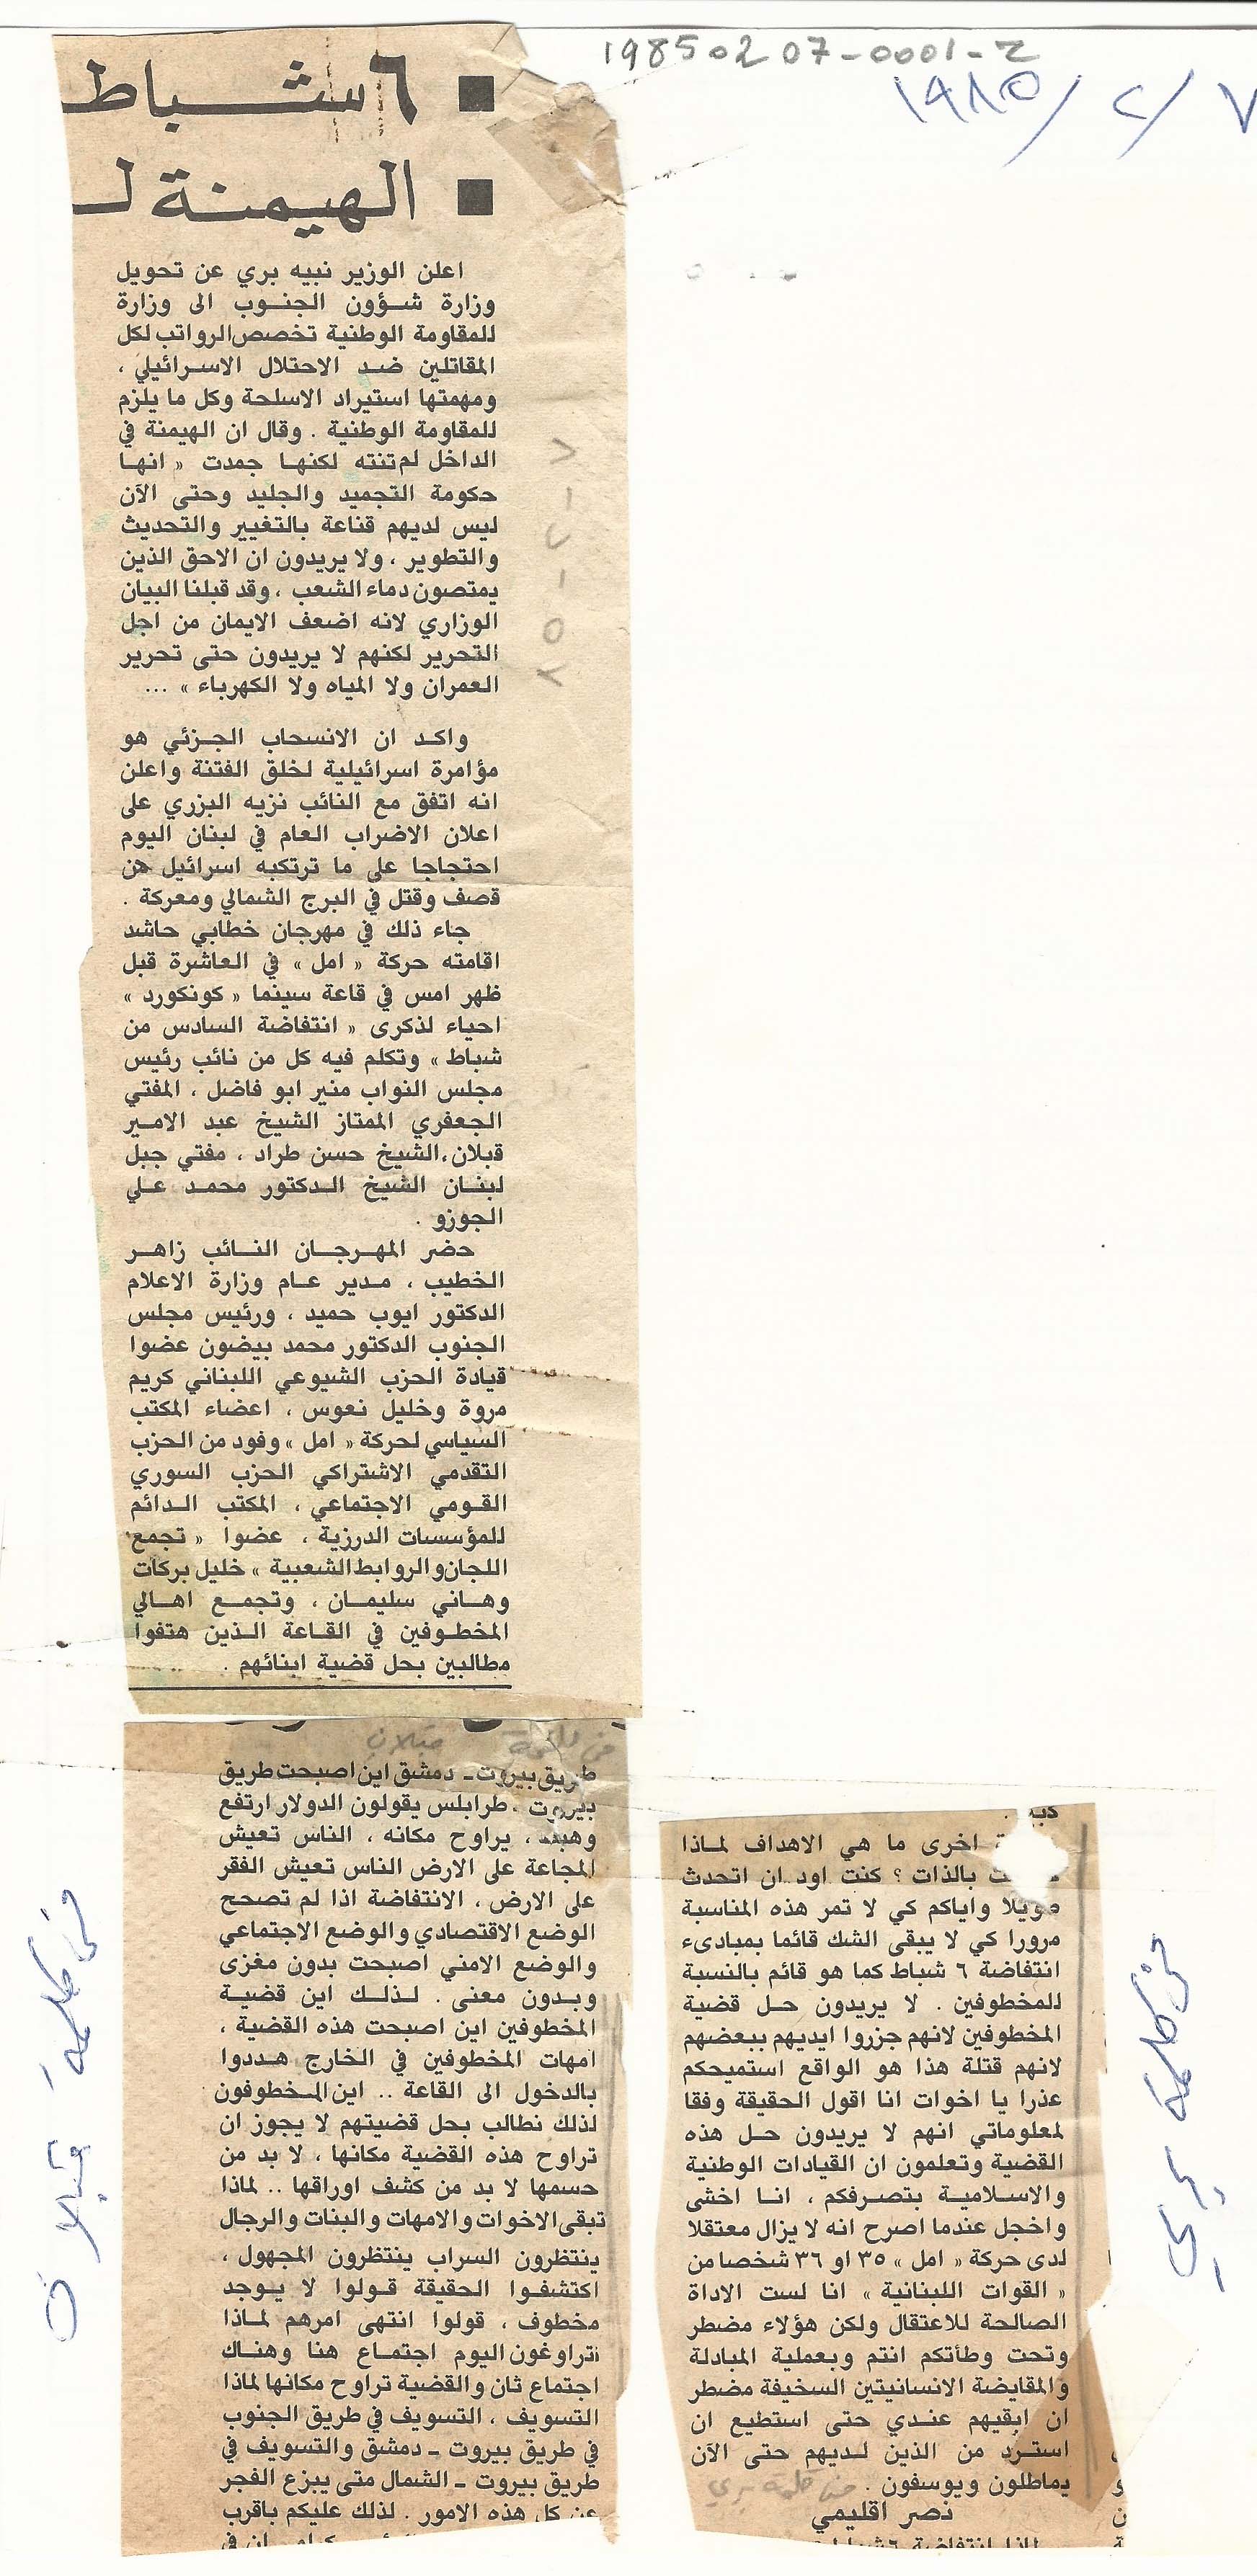 19850207-0001-2
٧/٢/١٩٨٥
■ ٦ شباط
■ الهيمنة لـ
اعلن الوزير نبيه بري عن تحويل
وزارة شؤون الجنوب الى وزارة
للمقاومة الوطنية تخصص الرواتب لكل
المقاتلين ضد الاحتلال الاسرائيلي ،
ومهمتها استيراد الاسلحة وكل ما يلزم
للمقاومة الوطنية . وقال ان الهيمنة في
الداخل لم تنته لكنها جمدت « انها
حكومة التجميد والجليد وحتى الآن
ليس لديهم قناعة بالتغيير والتحديث
والتطوير ، ولا يريدون ان الاحق الذين
يمتصون دماء الشعب ، وقد قبلنا البيان
الوزاري لانه اضعف الايمان من اجل
التحرير لكنهم لا يريدون حتى تحرير
العمران ولا المياه ولا الكهرباء » ...
واكد ان الانسحاب الجزئي هو
مؤامرة اسرائيلية لخلق الفتنة واعلن
انه اتفق مع النائب نزيه البزري على
اعلان الاضراب العام في لبنان اليوم
احتجاجا على ما ترتكبه اسرائيل من
قصف وقتل في البرج الشمالي ومعركة .
جاء ذلك في مهرجان خطابي حاشد
اقامته حركة « امل » في العاشرة قبل
ظهر امس في قاعة سينما « كونكورد »
احياء لذكرى « انتفاضة السادس من
شباط » وتكلم فيه كل من نائب رئيس
مجلس النواب منير ابو فاضل ، المفتي
الجعفري الممتاز الشيخ عبد الامير
قبلان ، الشيخ حسن طراد ، مفتي جبل
لبنان الشيخ الدكتور محمد علي
الجوزو .
حضر المهرجان النائب زاهر
الخطيب ، مدير عام وزارة الاعلام
الدكتور ايوب حميد ، ورئيس مجلس
الجنوب الدكتور محمد بيضون عضوا
قيادة الحزب الشيوعي اللبناني كريم
مروة وخليل نعوس ، اعضاء المكتب
السياسي لحركة « امل » وفود من الحزب
التقدمي الاشتراكي الحزب السوري
القومي الاجتماعي ، المكتب الدائم
للمؤسسات الدرزية ، عضوا « تجمع
اللجان والروابط الشعبية » خليل بركات
وهاني سليمان ، وتجمع اهالي
المخطوفين في القاعة الذين هتفوا
مطالبين بحل قضية ابنائهم .
اخرى ما هي الاهداف لماذا
بالذات ؟ كنت اود ان اتحدث
طويلا واياكم كي لا تمر هذه المناسبة
مرورا كي لا يبقى الشك قائما بمبادىء
انتفاضة ٦ شباط كما هو قائم بالنسبة
للمخطوفين . لا يريدون حل قضية
المخطوفين لانهم جزروا ايديهم ببعضهم
لانهم قتلة هذا هو الواقع استميحكم
عذرا يا اخوات انا اقول الحقيقة وفقا
لمعلوماتي انهم لا يريدون حل هذه
القضية وتعلمون ان القيادات الوطنية
والاسلامية بتصرفكم ، انا اخشى
واخجل عندما اصرح انه لا يزال معتقلا
لدى حركة « امل » ٣٥ او ٣٦ شخصا من
« القوات اللبنانية » انا لست الاداة
الصالحة للاعتقال ولكن هؤلاء مضطر
وتحت وطأتكم انتم وبعملية المبادلة
والمقايضة الانسانيتين السخيفة مضطر
ان ابقيهم عندي حتى استطيع ان
استرد من الذين لديهم حتى الآن
يماطلون ويوسفون .
من كلمة بري
نصر اقليمي
لماذا انتفاضة ٦ شباط
من كلمة بري
من كلمة قبلان
طريق بيروت ـ دمشق اين اصبحت طريق
بيروت ـ طرابلس يقولون الدولار ارتفع
وهبط ، يراوح مكانه ، الناس تعيش
المجاعة على الارض الناس تعيش الفقر
على الارض ، الانتفاضة اذا لم تصحح
الوضع الاقتصادي والوضع الاجتماعي
والوضع الامني اصبحت بدون مغزى
وبدون معنى . لذلك اين قضية
المخطوفين اين اصبحت هذه القضية ،
امهات المخطوفين في الخارج هددوا
بالدخول الى القاعة .. اين المخطوفون
لذلك نطالب بحل قضيتهم لا يجوز ان
تراوح هذه القضية مكانها ، لا بد من
حسمها لا بد من كشف اوراقها .. لماذا
تبقى الاخوات والامهات والبنات والرجال
ينتظرون السراب ينتظرون المجهول ،
اكتشفوا الحقيقة قولوا لا يوجد
مخطوف ، قولوا انتهى امرهم لماذا
تراوغون اليوم اجتماع هنا وهناك
اجتماع ثان والقضية تراوح مكانها لماذا
التسويف ، التسويف في طريق الجنوب
في طريق بيروت ـ دمشق والتسويف في
طريق بيروت ـ الشمال متى يبزغ الفجر
عن كل هذه الامور . لذلك عليكم باقرب
من كلمة قبلان